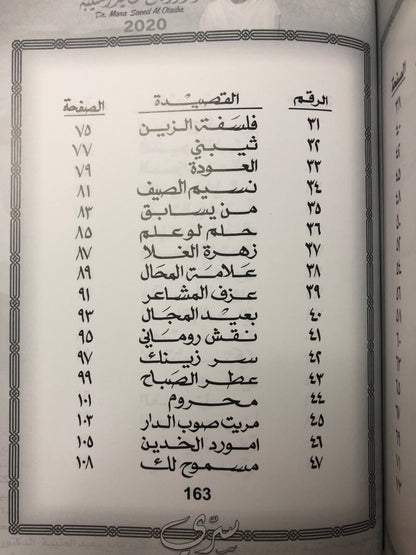 Dr. Mana Saeed Al Otaiba
2020
الرقم القصيدة الصفحة
٣١ فلسفة الزين ٧٥
٣٢ ثيبني ٧٧
٣٣ العودة ٧٩
٣٤ نسيم الصيف ٨١
٣٥ من يسابق ٨٣
٣٦ حلم لو علم ٨٥
٣٧ زهرة الغلا ٨٧
٣٨ علامة المحال ٨٩
٣٩ عزف المشاعر ٩١
٤٠ بعيد المجال ٩٣
٤١ نقش روماني ٩٥
٤٢ سر زينك ٩٧
٤٣ عطر الصباح ٩٩
٤٤ محروم ١٠١
٤٥ مريت صوب الدار ١٠٣
٤٦ امورد الخدين ١٠٥
٤٧ مسموح لك ١٠٨
163